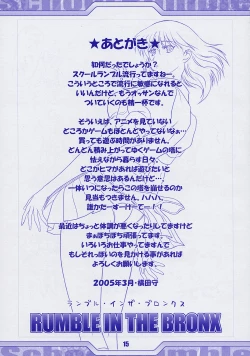 ★あとがき★
如何だったでしょうか？
スクールランブル流行ってますねー。
こういうところで流行に敏感になれると
いいんだけど、もうオッサンなんで
ついていくのも精一杯です。
そういえば、アニメを見ていない
どころかゲームもほとんどやってないなぁ…
買っても遊ぶ時間がありません。
どんどん積み上がってゆくゲームの塔に
怯えながら暮らす日々、
どこかヒマがあれば遊びたいと
思う意思はあるんだけど…、
一体いつになったらこの塔を崩せるのか
見当もつきません。ハハハ、
誰かたーすーけーてー！！
最近はちょっと体調が悪くなったりしてますけど
まぁぼちぼち頑張ってます。
いろいろお仕事やってますんで
もしそれっぽいのを見かける事があれば
よろしくお願いします。
2005年3月・横田守
ランブル・イン・ザ・ブロンクス
RUMBLE IN THE BRONX
15